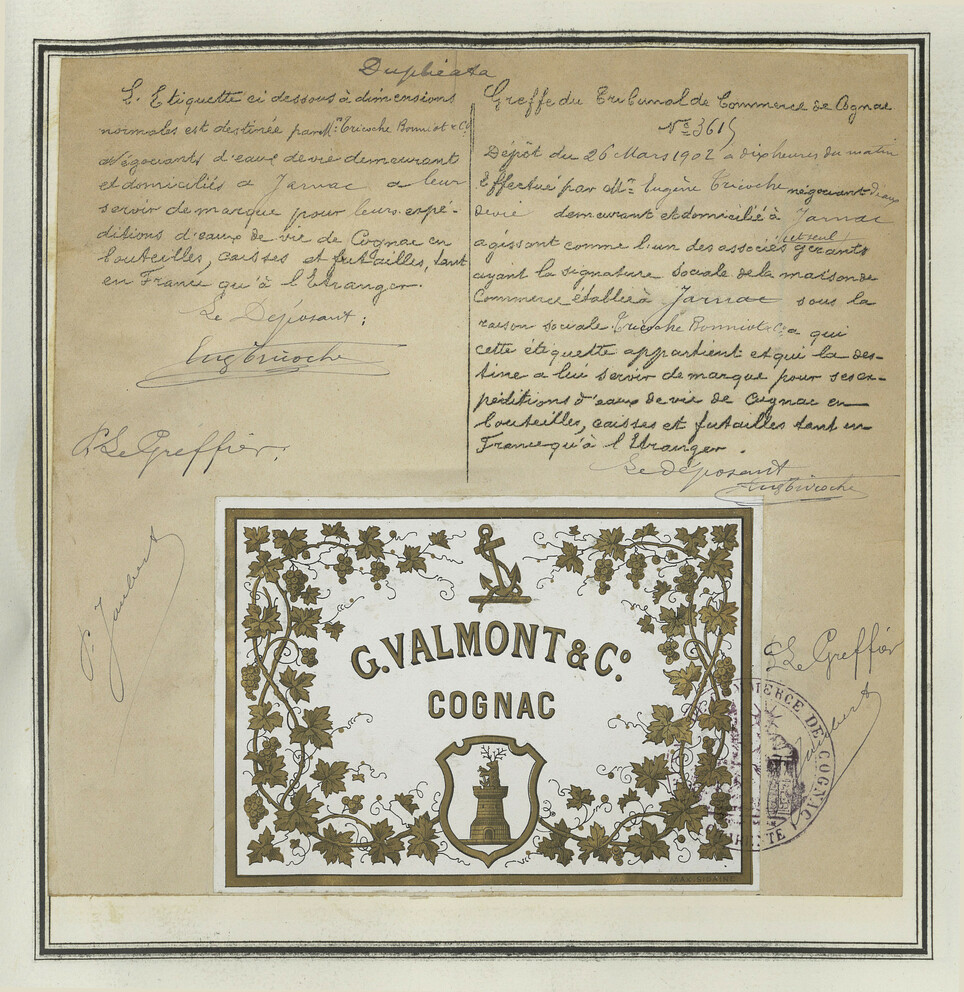 Duplicata
L. Etiquette ci dessous à dimensions
normales est destinée par Mrs Tricoche Bonniot & Co
négociants d'eaux de vie demeurant
et domiciliés a Jarnac a leur
servir de marque pour leurs expé-
ditions d'eaux de vie de Cognac en
bouteilles, caisses et futailles, tant
en France qu'à l'Etranger.
Le Déposant :
Eug Tricoche
Le Greffier.
Greffe du Tribunal de Commerce de Cognac
No 3615
Dépôt du 26 Mars 1902 à dix heures du matin
Effectué par Mr Eugène Tricoche négociant d'eaux
de vie demeurant et domicilié à Jarnac
agissant comme l'un des associés gérants
(et seul)
ayant la signature sociale de la maison de
Commerce établie à Jarnac sous la
raison sociale Tricoche Bonniot & Co a qui
cette étiquette appartient et qui la des-
tine a lui servir de marque pour ses ex-
péditions d'eaux de vie de Cognac en
bouteilles, caisses et futailles tant en
France qu'à l'Etranger.
Le déposant
Eug Tricoche
G. VALMONT & Co.
COGNAC
Le Greffier
COMMERCE DE COGNAC